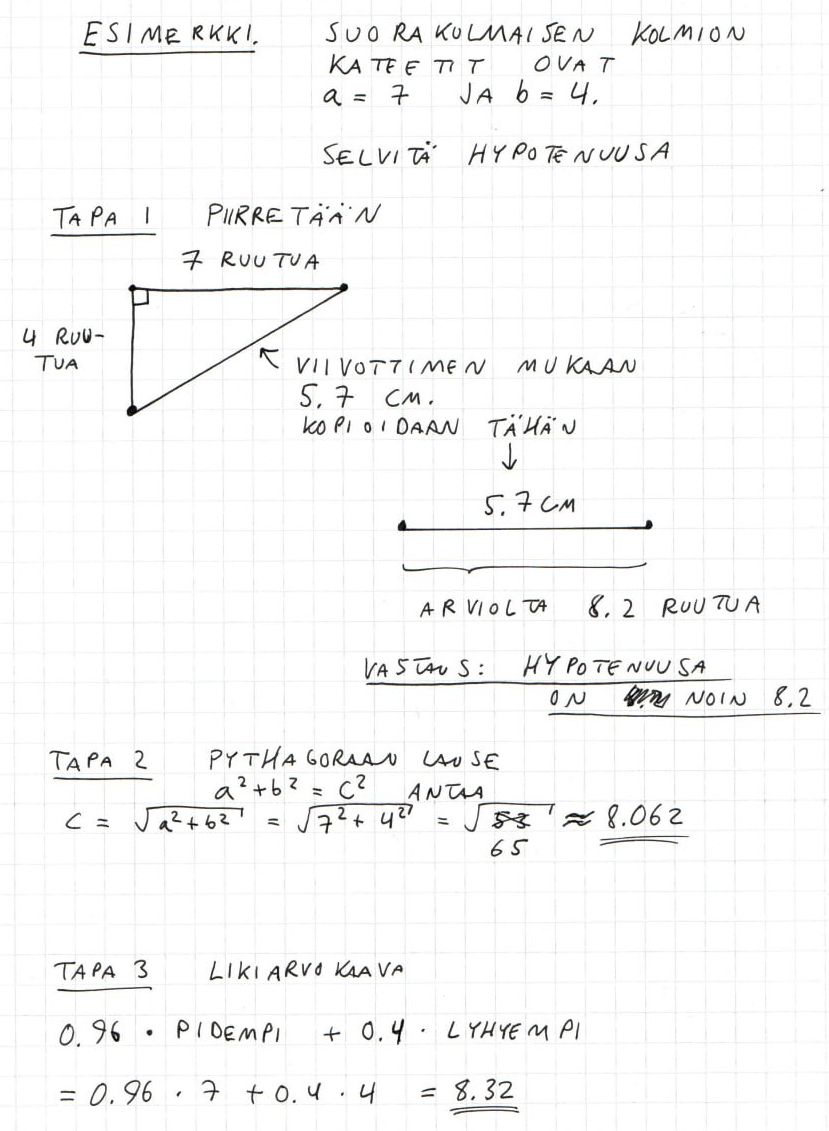 ESIMERKKI. SUORAKULMAISEN KOLMION
KATEETIT OVAT
a = 7 JA b = 4.
SELVITÄ HYPOTENUUSA
TAPA 1 PIIRRETÄÄN
7 RUUTUA
4 RUU-
TUA
VIIVOTTIMEN MUKAAN
5.7 CM.
KOPIOIDAAN TÄHÄN
↓
5.7 CM
ARVIOLTA 8.2 RUUTUA
VASTAUS: HYPOTENUUSA
ON NOIN 8.2
TAPA 2 PYTHAGORAAN LAUSE
a² + b² = c² ANTAA
c = √a² + b² = √7² + 4² = √53 ≈ 8.062
65
TAPA 3 LIKIARVOKAAVA
0.96 · PIDEMPI + 0.4 · LYHYEMPI
= 0.96 · 7 + 0.4 · 4 = 8.32